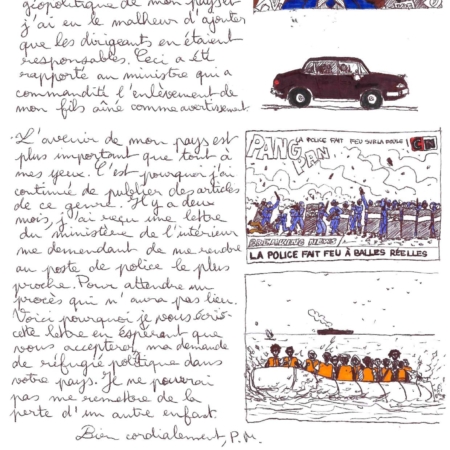 géopolitique de mon pays et
j'ai eu le malheur d'ajouter
que les dirigeants en étaient
responsables. Ceci a été
rapporté au ministre qui a
commandité l'enlèvement de
mon fils aîné comme avertissement.
L'avenir de mon pays est
plus important que tout à
mes yeux. C'est pourquoi j'ai
continué de publier des articles
de ce genre. Il y a deux
mois, j'ai reçu une lettre
du ministère de l'intérieur
me demandant de me rendre
au poste de police le plus
proche. Pour attendre un
procès qui n'aura pas lieu.
Voici pourquoi je vous écris
cette lettre en espérant que
vous accepterez ma demande
de réfugié politique dans
votre pays. Je ne pourrai
pas me remettre de la
perte d'un autre enfant.
Bien cordialement, P.M.
LA POLICE FAIT FEU SUR LA FOULE !
PANG
PAN
BREAKING NEWS
LA POLICE FAIT FEU À BALLES RÉELLES